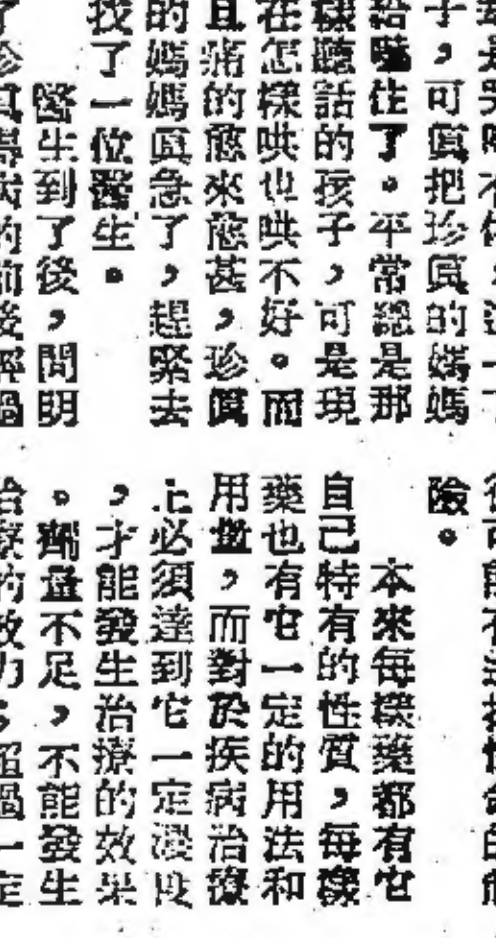 子，可真把珍真的媽媽
給嚇住了。平常總是那
樣聽話的孩子，可是現
在怎樣哄也哄不好。而
且痛的愈來愈甚，珍真
的媽媽真急了，趕緊去
找了一位醫生。
醫生到了後，問明
險。
本來每樣藥都有它
自己特有的性質，每樣
藥也有它一定的用法和
用量，而對於疾病治療
上必須達到它一定濃度
，才能發生治療的效果
。劑量不足，不能發生
治療的效力；超過一定